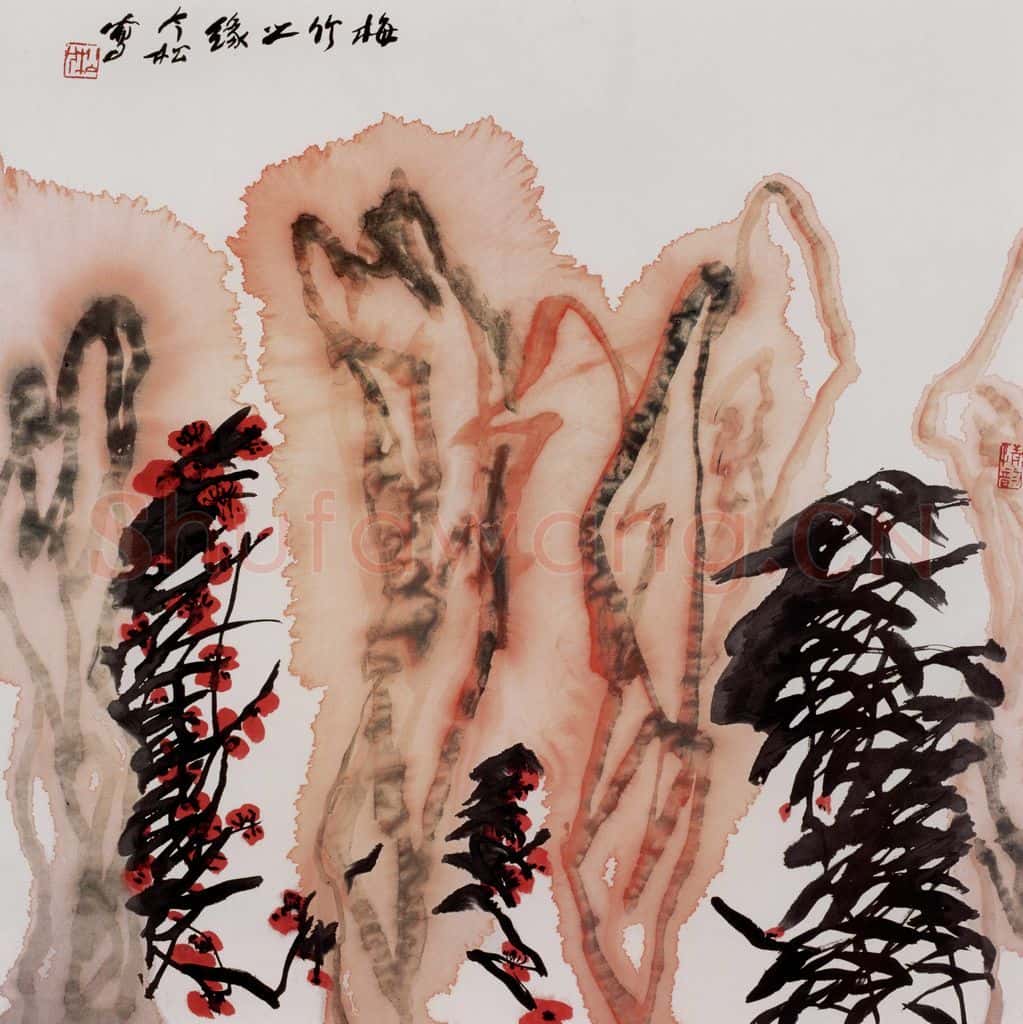 梅竹之缘 今松写
Shufawang.CN